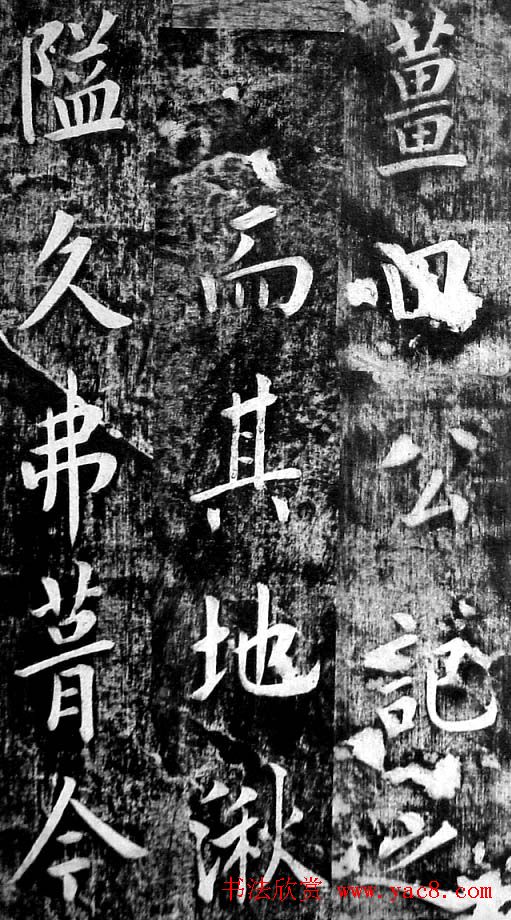 薑公記
而其地湫
隘久弗葺今
书法欣赏 www.yac8.com